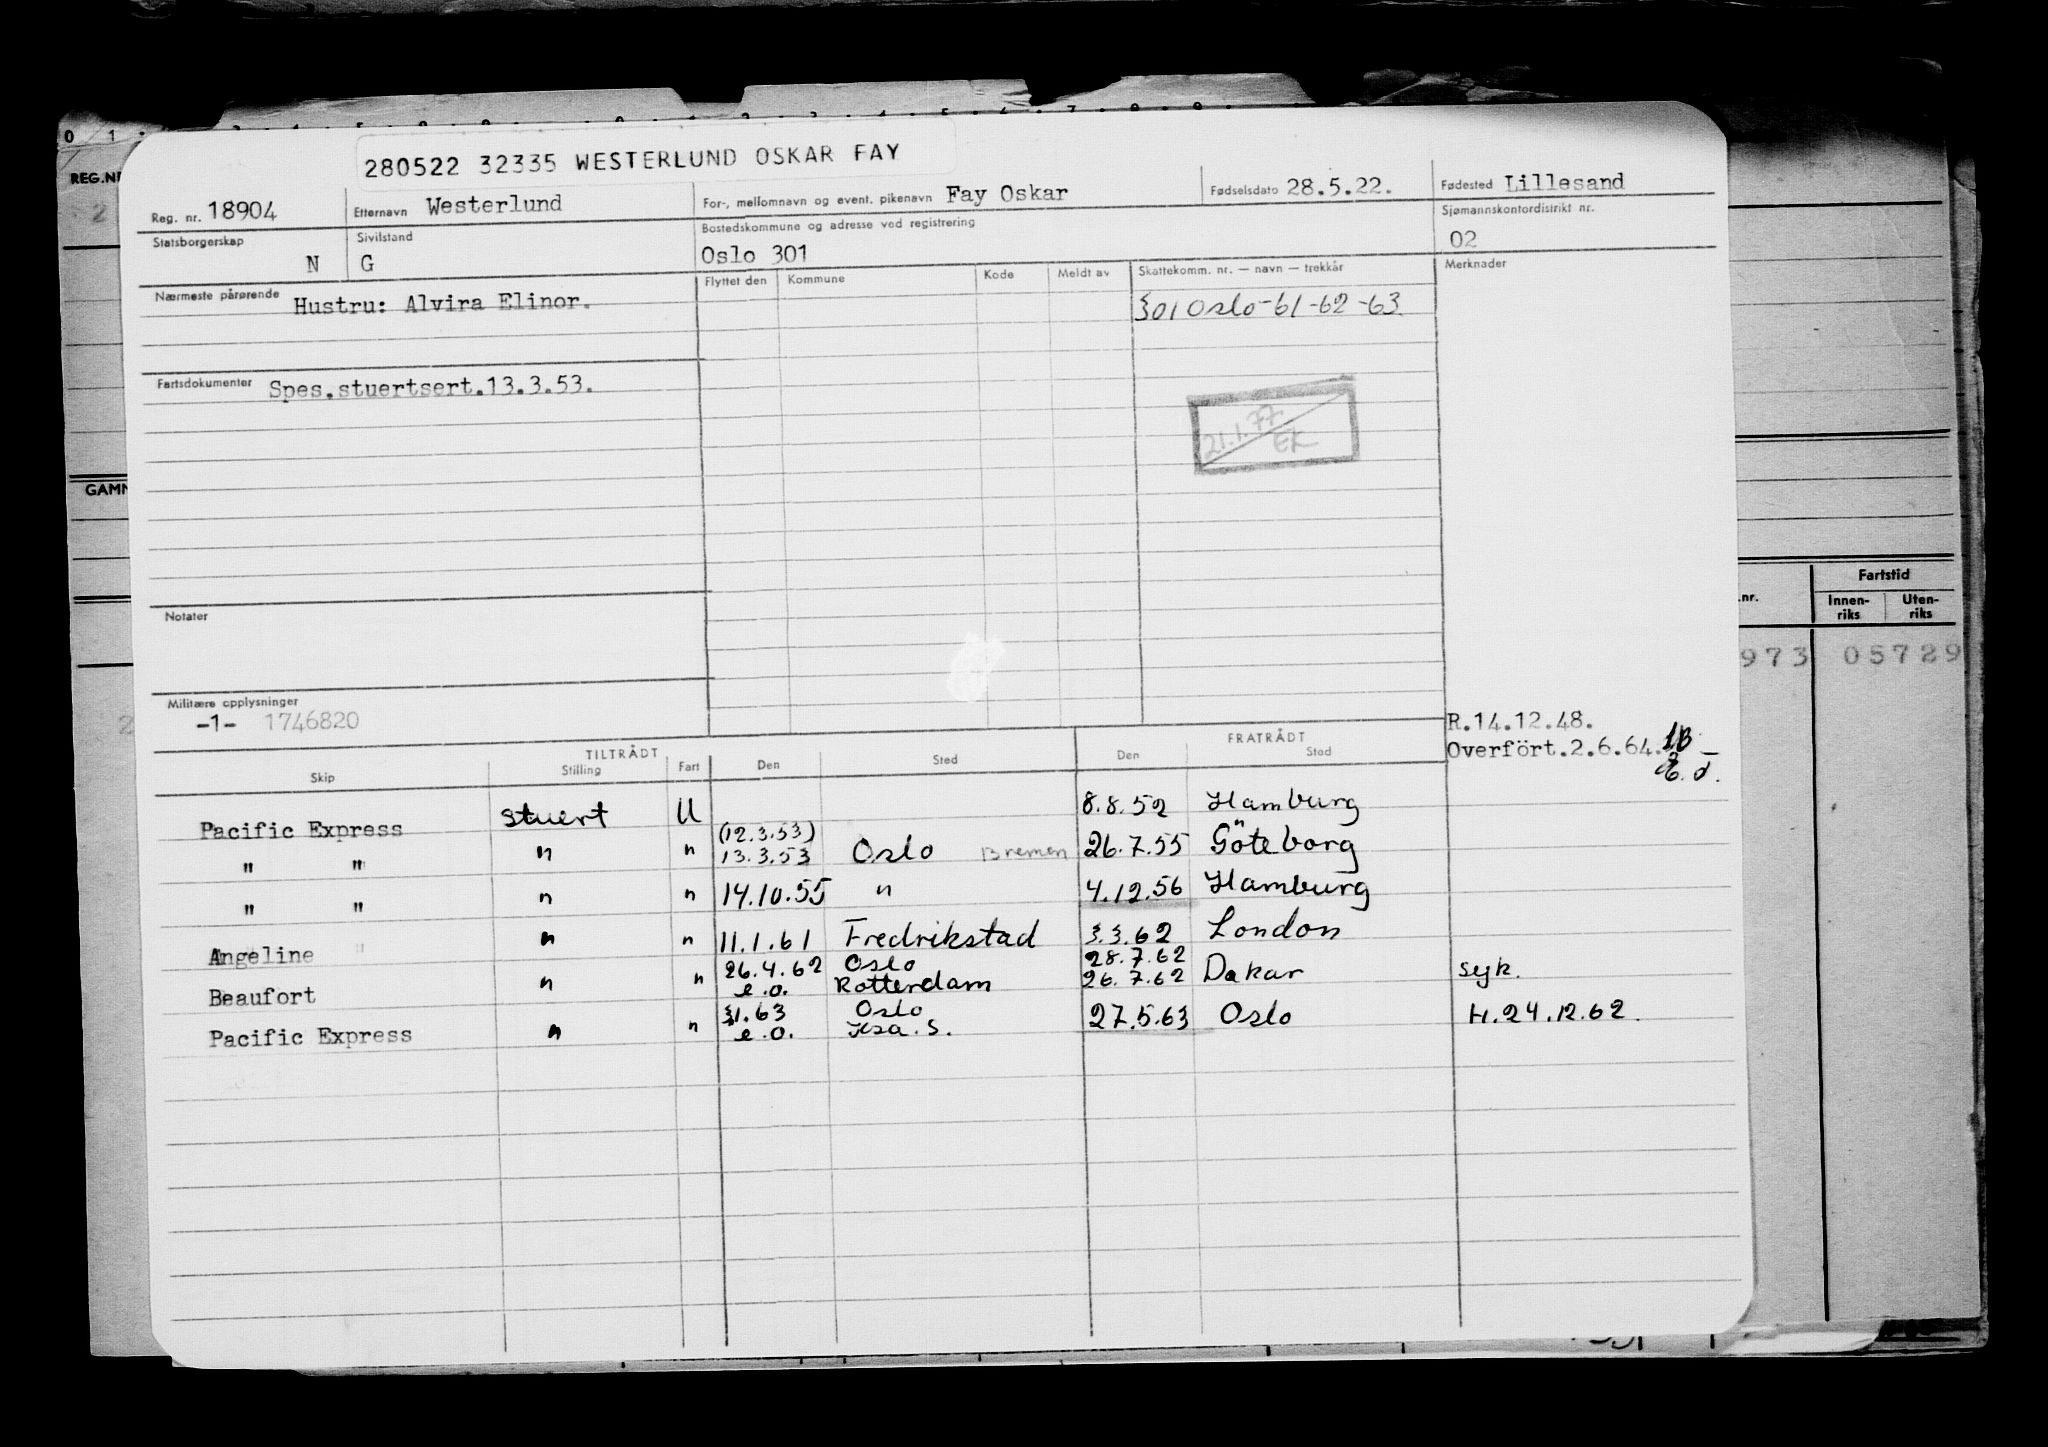 280522 32335 WESTERLUND OSKAR FAY
Reg. nr. 18904 Etternavn Westerlund For-, mellomnavn og event. pikenavn Fay Oskar Fødselsdato 28.5.22. Fødested Lillesand
Statsborgerskap N Sivilstand G Bostedskommune og adresse ved registrering Oslo 301 Sjømannskontordistrikt nr. 02
Nærmeste pårørende Hustru: Alvira Elinor.
Flyttet den Kommune Kode Meldt av Skattekomm. nr. — navn — trekkår Merknader
301 Oslo-61-62-63
Fartsdokumenter Spes.stuertsert.13.3.53.
21.1.77
EK
Notater
Militære opplysninger
-1- 1746820
R.14.12.48.
Overfört.2.6.64.
TILTRÅDT FRATRÅDT
Skip Stilling Fart Den Sted Den Sted
Pacific Express stuert U 8.8.52 Hamburg
(12.3.53)
" " " " 13.3.53 Oslo Bremen 26.7.55 Göteborg
" " " " 14.10.55 " 4.12.56 Hamburg
Angeline " " 11.1.61 Fredrikstad 3.3.62 London
26.4.62 Oslo 28.7.62
Beaufort " " e.o. Rotterdam 26.7.62 Dakar syk.
31.63 Oslo
Pacific Express " " e.o. Kra.S. 27.5.63 Oslo H.24.12.62.
REG.NR
GAMM
.nr.
Fartstid
Innen-
riks
Uten-
riks
973 05729